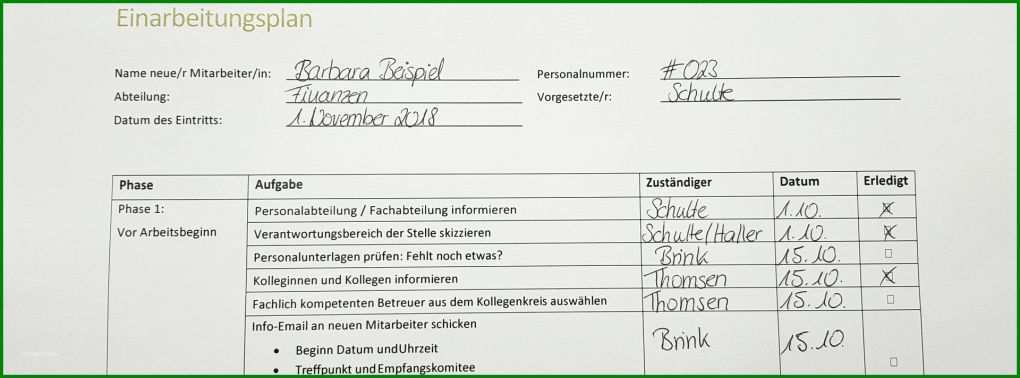 Einarbeitungsplan
Name neue/r Mitarbeiter/in: Barbara Beispiel Personalnummer: #023
Abteilung: Finanzen Vorgesetzte/r: Schulte
Datum des Eintritts: 1. November 2018
Phase Aufgabe Zuständiger Datum Erledigt
Phase 1: Personalabteilung / Fachabteilung informieren Schulte 1.10.
Vor Arbeitsbeginn Verantwortungsbereich der Stelle skizzieren Schulte/Haller 1.10.
Personalunterlagen prüfen: Fehlt noch etwas? Brink 15.10.
Kolleginnen und Kollegen informieren Thomsen 15.10.
Fachlich kompetenten Betreuer aus dem Kollegenkreis auswählen Thomsen 15.10.
Info-Email an neuen Mitarbeiter schicken Brink 15.10.
• Beginn Datum und Uhrzeit
• Treffpunkt und Empfangskomitee